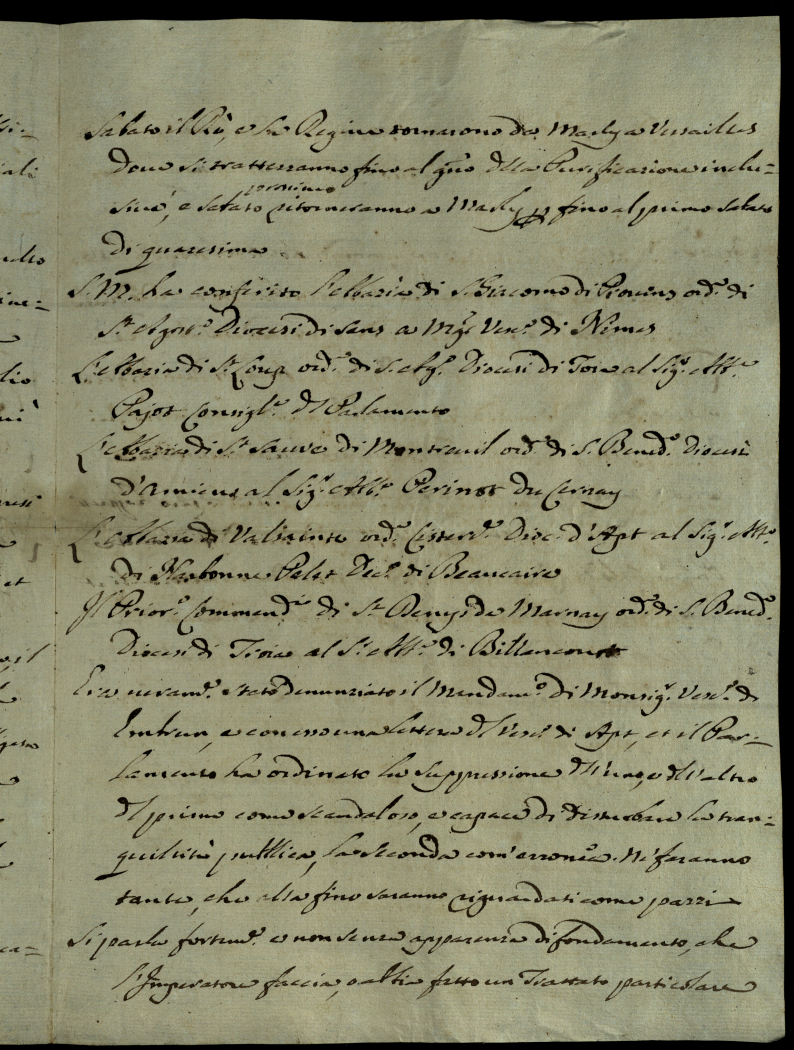 Sabato il Rè, e la Regina tornarono da Marly a Versailles
dove si tratterranno fino al gno della Purificazione inclu=
sive, e Sabato prossimo ritorneranno a Marly fino al primo Sabato
di quaresima
S. M. ha conferito l'Abbazia di S. Giacomo di Provins ord.e di
St. Agost.o Diocesi di Sens a Mgr Vesc.o di Nimes
L'Abbazia di St. Loup ord.e di S. Ag.o Diocesi di Troia al Sig.r Abb.e
Pajot Consigl.re del Parlamento
L'Abbazia di St. Sauve di Montreuil ord.e di S. Bened.o Diocesi
d'Amiens al Sig.r Abb.e Perinot du Cernay
L'Abbazia di Valsainte ord.e Cisterc.e Dioc. d'Apt al Sig.r Abb.e
di Narbonne Pelet Dec.o di Beaucaire
Il Prior.o Commend.o di St. Denys de Marnay ord.e di S. Bened.o
Diocesi di Troia al Sr. Abb.e di Billancourt
Era novam.e stato denunziato il Mandam.o di Monsig.r Vesc.o di
Embrun, e con esso una lettera del Vesc.o di Apt, et il Par=
lamento ha ordinato la suppressione dell'uno, e dell'altro
del primo come scandaloso, e capace di disturbare la tran=
quilità pubblica, la seconda com'erronea. Ne faranno
tante, che alla fine saranno riguardati come pazzi
Si parla fortem.e e non senza apparenza di fondamento, che
l'Imperatore faccia, o abbia fatto un Trattato particolare